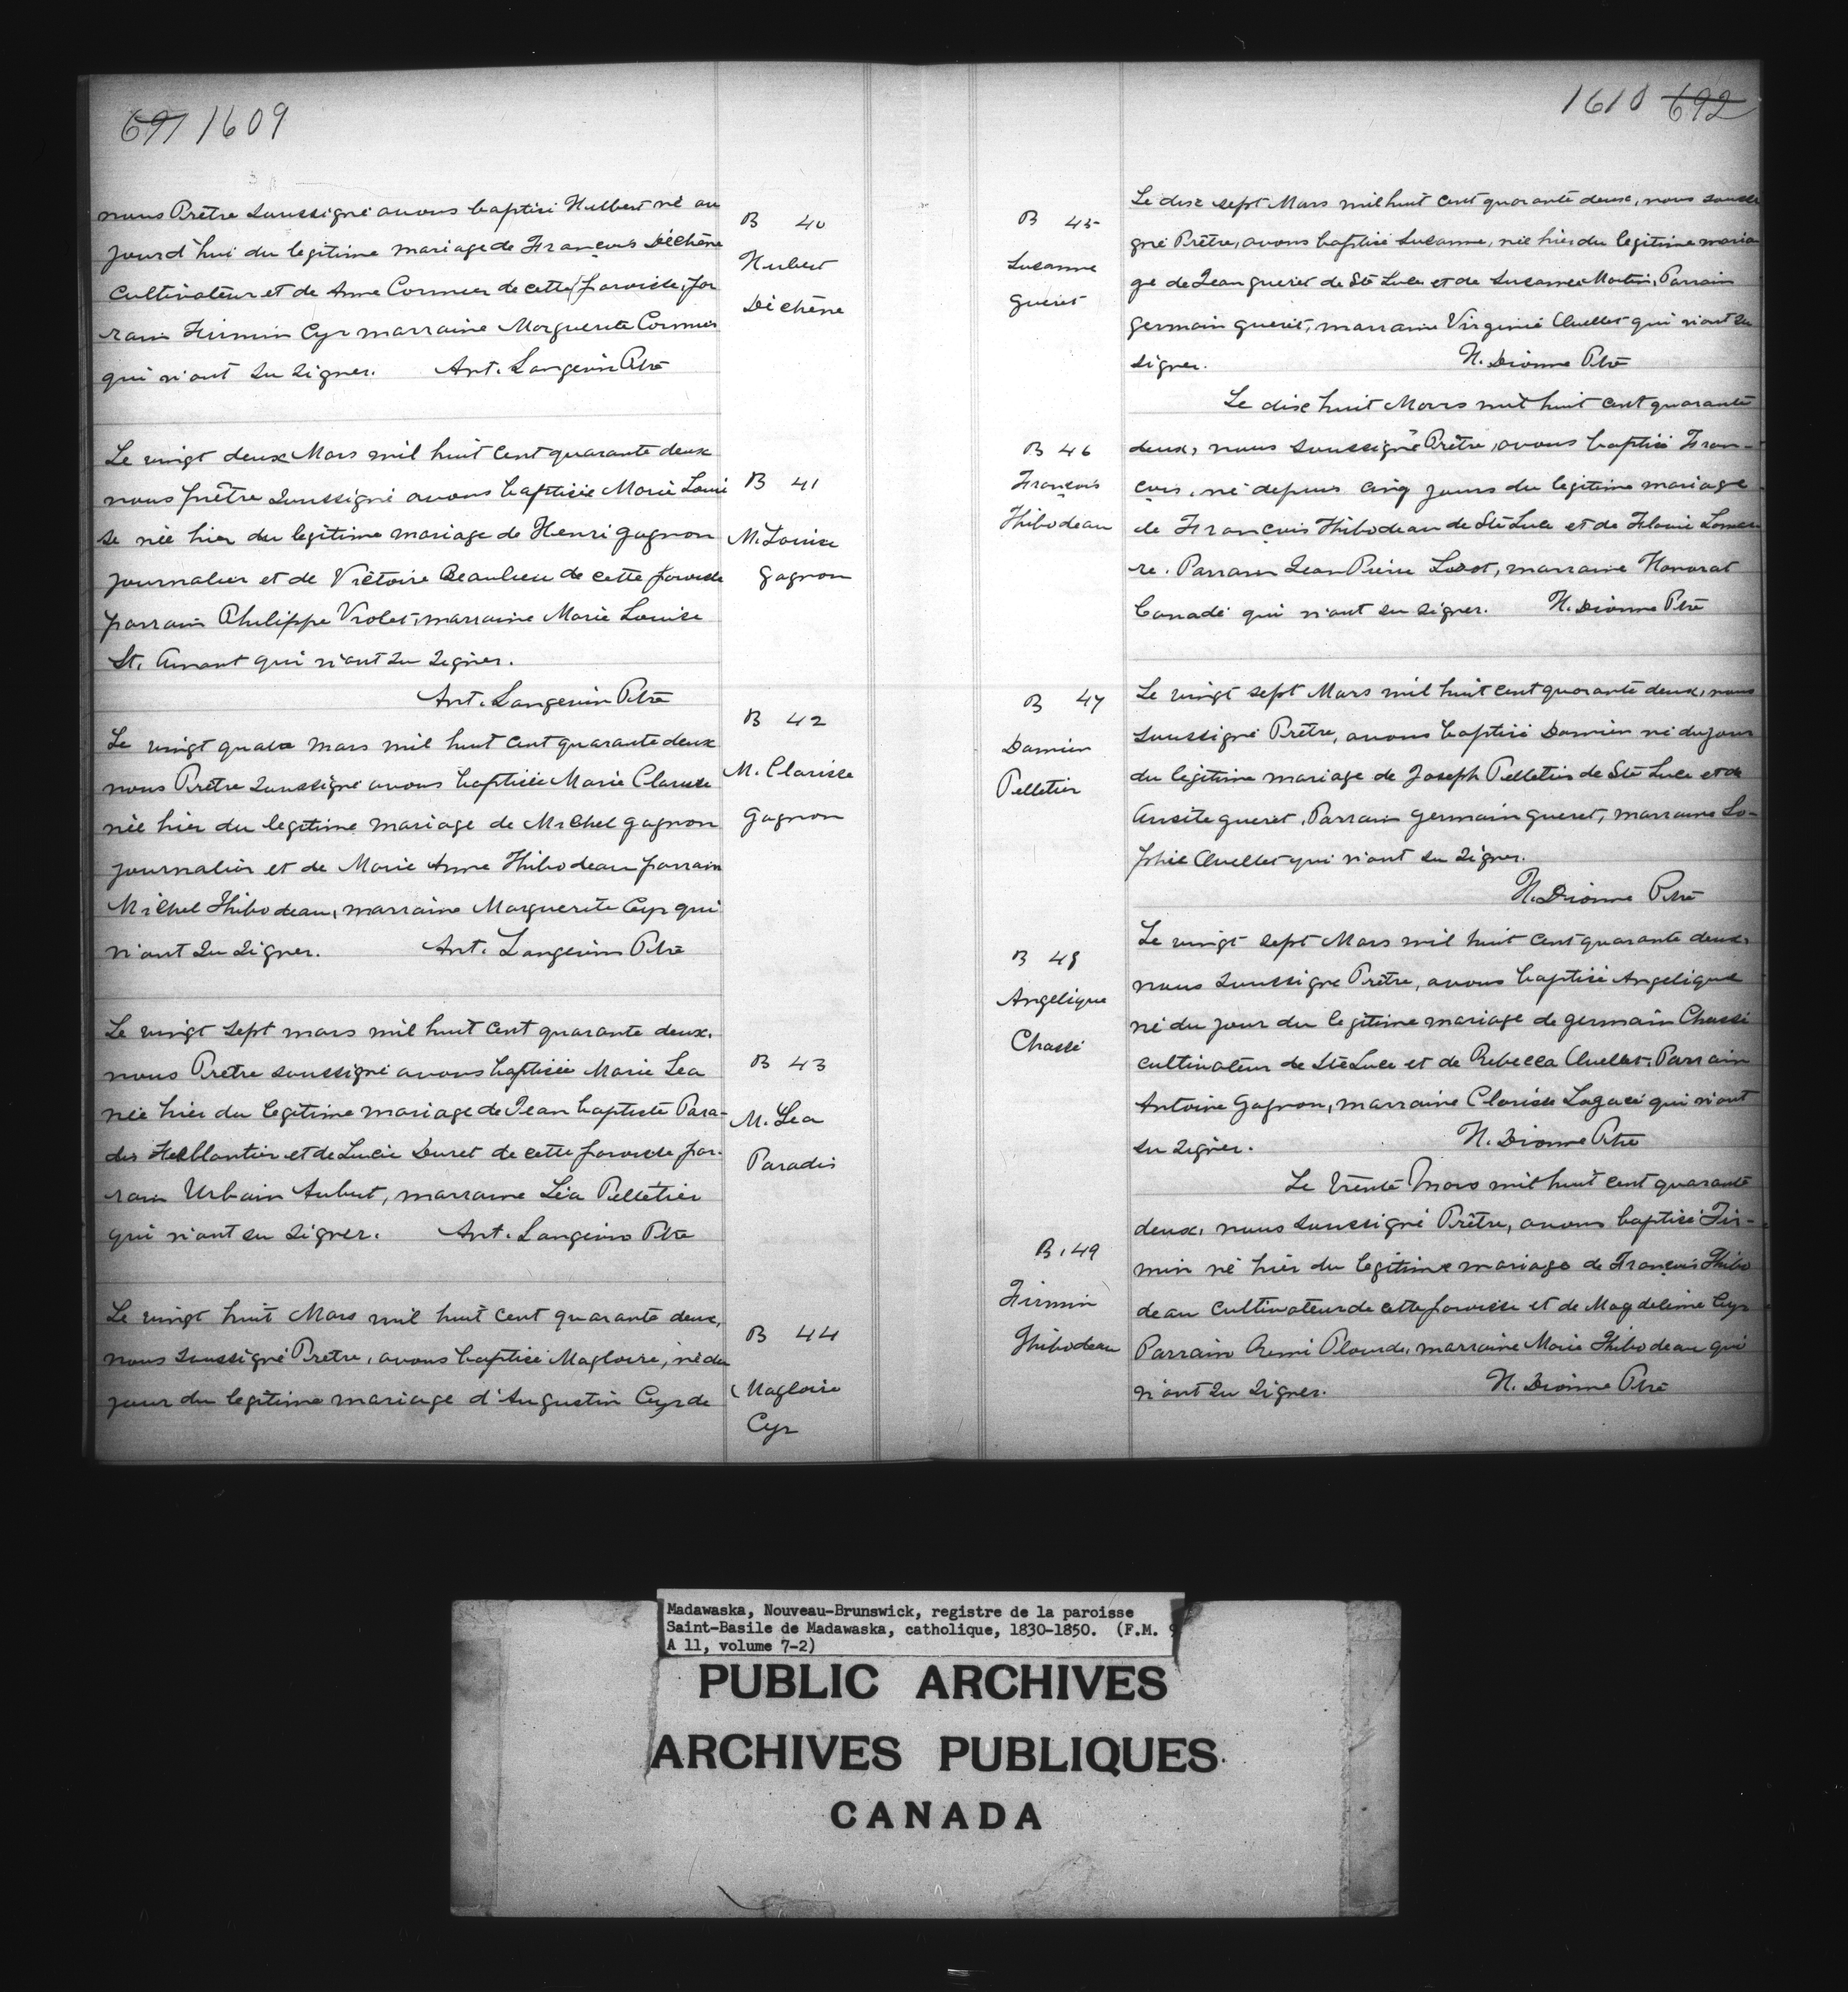 691 1609
nous Prêtre soussigné avons baptisé Hulbert né au
jourd'hui du legitime mariage de François Dechêne
cultivateur et de Anne Cormier de cette paroisse, par
rain Firmin Cyr marraine Marguerite Cormier
qui n'ont su signer. Ant. Langevin Ptre
B 40
Hubert
Dechêne
Le vingt deux Mars mil huit cent quarante deux
nous prêtre soussigné avons baptisée Marie Loui
se née hier du legitime mariage de Henri Gagnon
journalier et de Victoire Beaulieu de cette paroisse
parrain Philippe Violet, marraine Marie Louise
St. Amant qui n'ont su signer.
Ant. Langevin Ptre
B 41
M. Louise
Gagnon
Le vingt quatre mars mil huit cent quarante deux
nous Prêtre soussigné avons baptisée Marie Clarisse
née hier du legitime mariage de Michel Gagnon
journalier et de Marie Anne Thibodeau parrain
Michel Thibodeau, marraine Marguerite Cyr qui
n'ont su signer. Ant. Langevin Ptre
B 42
M. Clarisse
Gagnon
Le vingt sept mars mil huit cent quarante deux.
nous Prêtre soussigné avons baptisée Marie Lea
née hier du legitime mariage de Jean baptiste Para-
dis et de Lucie Duret de cette paroisse par-
rain Urbain Aubut, marraine Léa Pelletier
qui n'ont su signer. Ant. Langevin Ptre
B 43
M. Lea
Paradis
Le vingt huit Mars mil huit cent quarante deux,
nous soussigné Prêtre, avons baptisé Magloire, né du
jour du legitime mariage d'Augustin Cyr de
B 44
Magloire
Cyr
1610 692
Le dix sept Mars mil huit cent quarante deux, nous soussi
gné Prêtre, avons baptisé Suzanne, née hier du legitime maria
ge de Jean Gueret de Ste Luce et de Suzanne Martin, Parrain
Germain Gueret, marraine Virginie Ouellet qui n'ont su
signer. H. Dionne Ptre
B 45
Suzanne
Gueret
Le dix huit Mars mil huit cent quarante
deux, nous soussigné Prêtre, avons baptisé Fran-
çois, né depuis cinq jours du legitime mariage
de François Thibodeau de Ste Luce et de
re. Parrain Jean Pierre marraine Honorat
Canadé qui n'ont su signer. H. Dionne Ptre
B 46
François
Thibodeau
Le vingt sept Mars mil huit cent quarante deux, nous
soussigné Prêtre, avons baptisé Damien né du jour
du legitime mariage de Joseph Pelletier de Ste Luce et de
Gueret, Parrain Germain Gueret, marraine So-
phie Ouellet qui n'ont su signer.
H. Dionne Ptre
B 47
Damien
Pelletier
Le vingt sept Mars mil huit cent quarante deux,
nous soussigné Prêtre, avons baptisé Angelique
né du jour du legitime mariage de Germain Chassé
cultivateur de Ste Luce et de Rebecca Ouellet. Parrain
Antoine Gagnon, marraine Clarisse Lagacé qui n'ont
su signer. H. Dionne Ptre
B 48
Angelique
Chassé
Le trente Mars mil huit cent quarante
deux, nous soussigné Prêtre, avons baptisé Fir-
min né hier du legitime mariage de François Thibo
deau cultivateur de cette paroisse et de Magdeleine Cyr
Parrain Remi Plourde, marraine Marie Thibodeau qui
n'ont su signer. H. Dionne Ptre
B. 49
Firmin
Thibodeau
Madawaska, Nouveau-Brunswick, registre de la paroisse
Saint-Basile de Madawaska, catholique, 1830-1850. (F.M. 9
A 11, volume 7-2)
PUBLIC ARCHIVES
ARCHIVES PUBLIQUES
CANADA